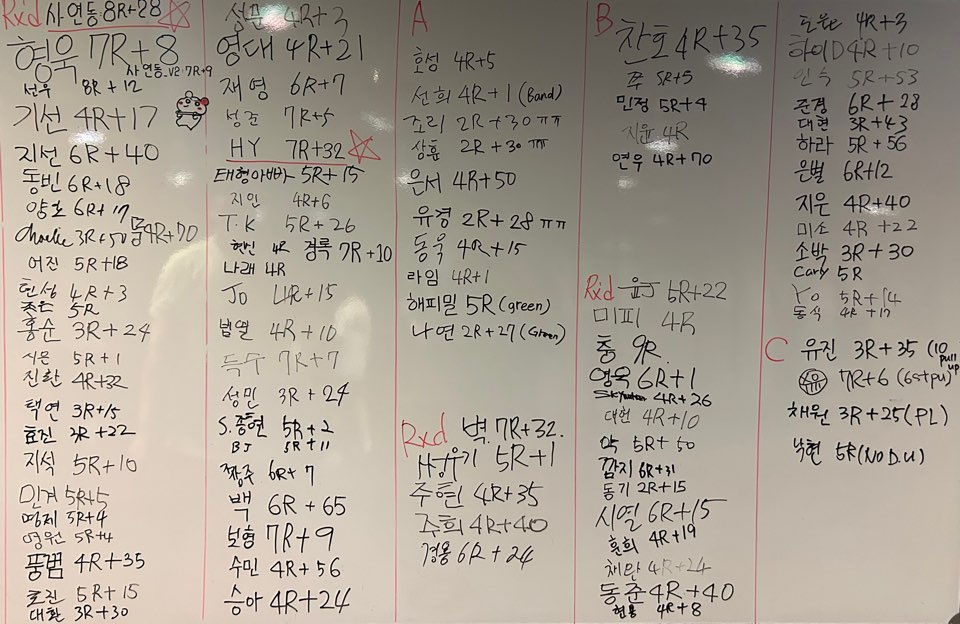 Rxd 사연동 8R+28
형욱 7R+8
사연동_V2: 7R+9
선우 8R+12
기선 4R+17
지선 6R+40
동빈 6R+18
양호 6R+17
Choelie 3R+50 4R+70
어진 5R+18
한성 4R+3
5R
홍순 3R+24
시은 5R+1
진환 4R+32
택연 3R+15
효진 3R+22
지석 5R+10
민겨 5R+5
명제 5R+4
영원 5R+4
풍범 4R+35
5R+15
대환 3R+30
성문 4R+3
영대 4R+21
재영 6R+7
성준 7R+5
HY 7R+32
태형아빠 5R+15
지인 4R+6
T.K 5R+26
현빈 4R 경록 7R+10
나래 4R
Jo 4R+15
범열 4R+10
득수 7R+7
성민 3R+24
S.종현 5R+2
BJ 5R+11
짱주 6R+7
백 6R+65
보형 7R+9
수민 4R+56
승아 4R+24
A
호성 4R+5
선희 4R+1 (Band)
조리 2R+30 ㅠㅠ
상훈 2R+30 ㅠㅠ
은서 4R+50
유경 2R+28 ㅠㅠ
동욱 4R+15
라임 4R+1
해피밀 5R (green)
나연 2R+27 (Green)
Rxd 벅 7R+32.
5R+1
주현 4R+35
주희 4R+40
경용 6R+24
B
찬호 4R+35
쭈 5R+5
민정 5R+4
지윤 4R
연우 4R+70
Rxd 윤J 5R+22
미피 4R
충 9R
영욱 6R+1
4R+26
대현 4R+10
5R+50
깜지 6R+31
동기 2R+15
시열 6R+15
훈희 4R+19
채완 4R+24
동준 4R+40
현용 4R+8
4R+3
하이D 4R+10
민숙 5R+53
준경 6R+28
대현 3R+43
하라 5R+56
은별 6R+12
지은 4R+40
미소 4R+22
소박 3R+30
Carly 5R
Yo 5R+14
동식 4R+17
C
유진 3R+35 (10 pull up)
7R+6 (6stpu)
채원 3R+25 (PL)
낙현 5R (NO D.U)